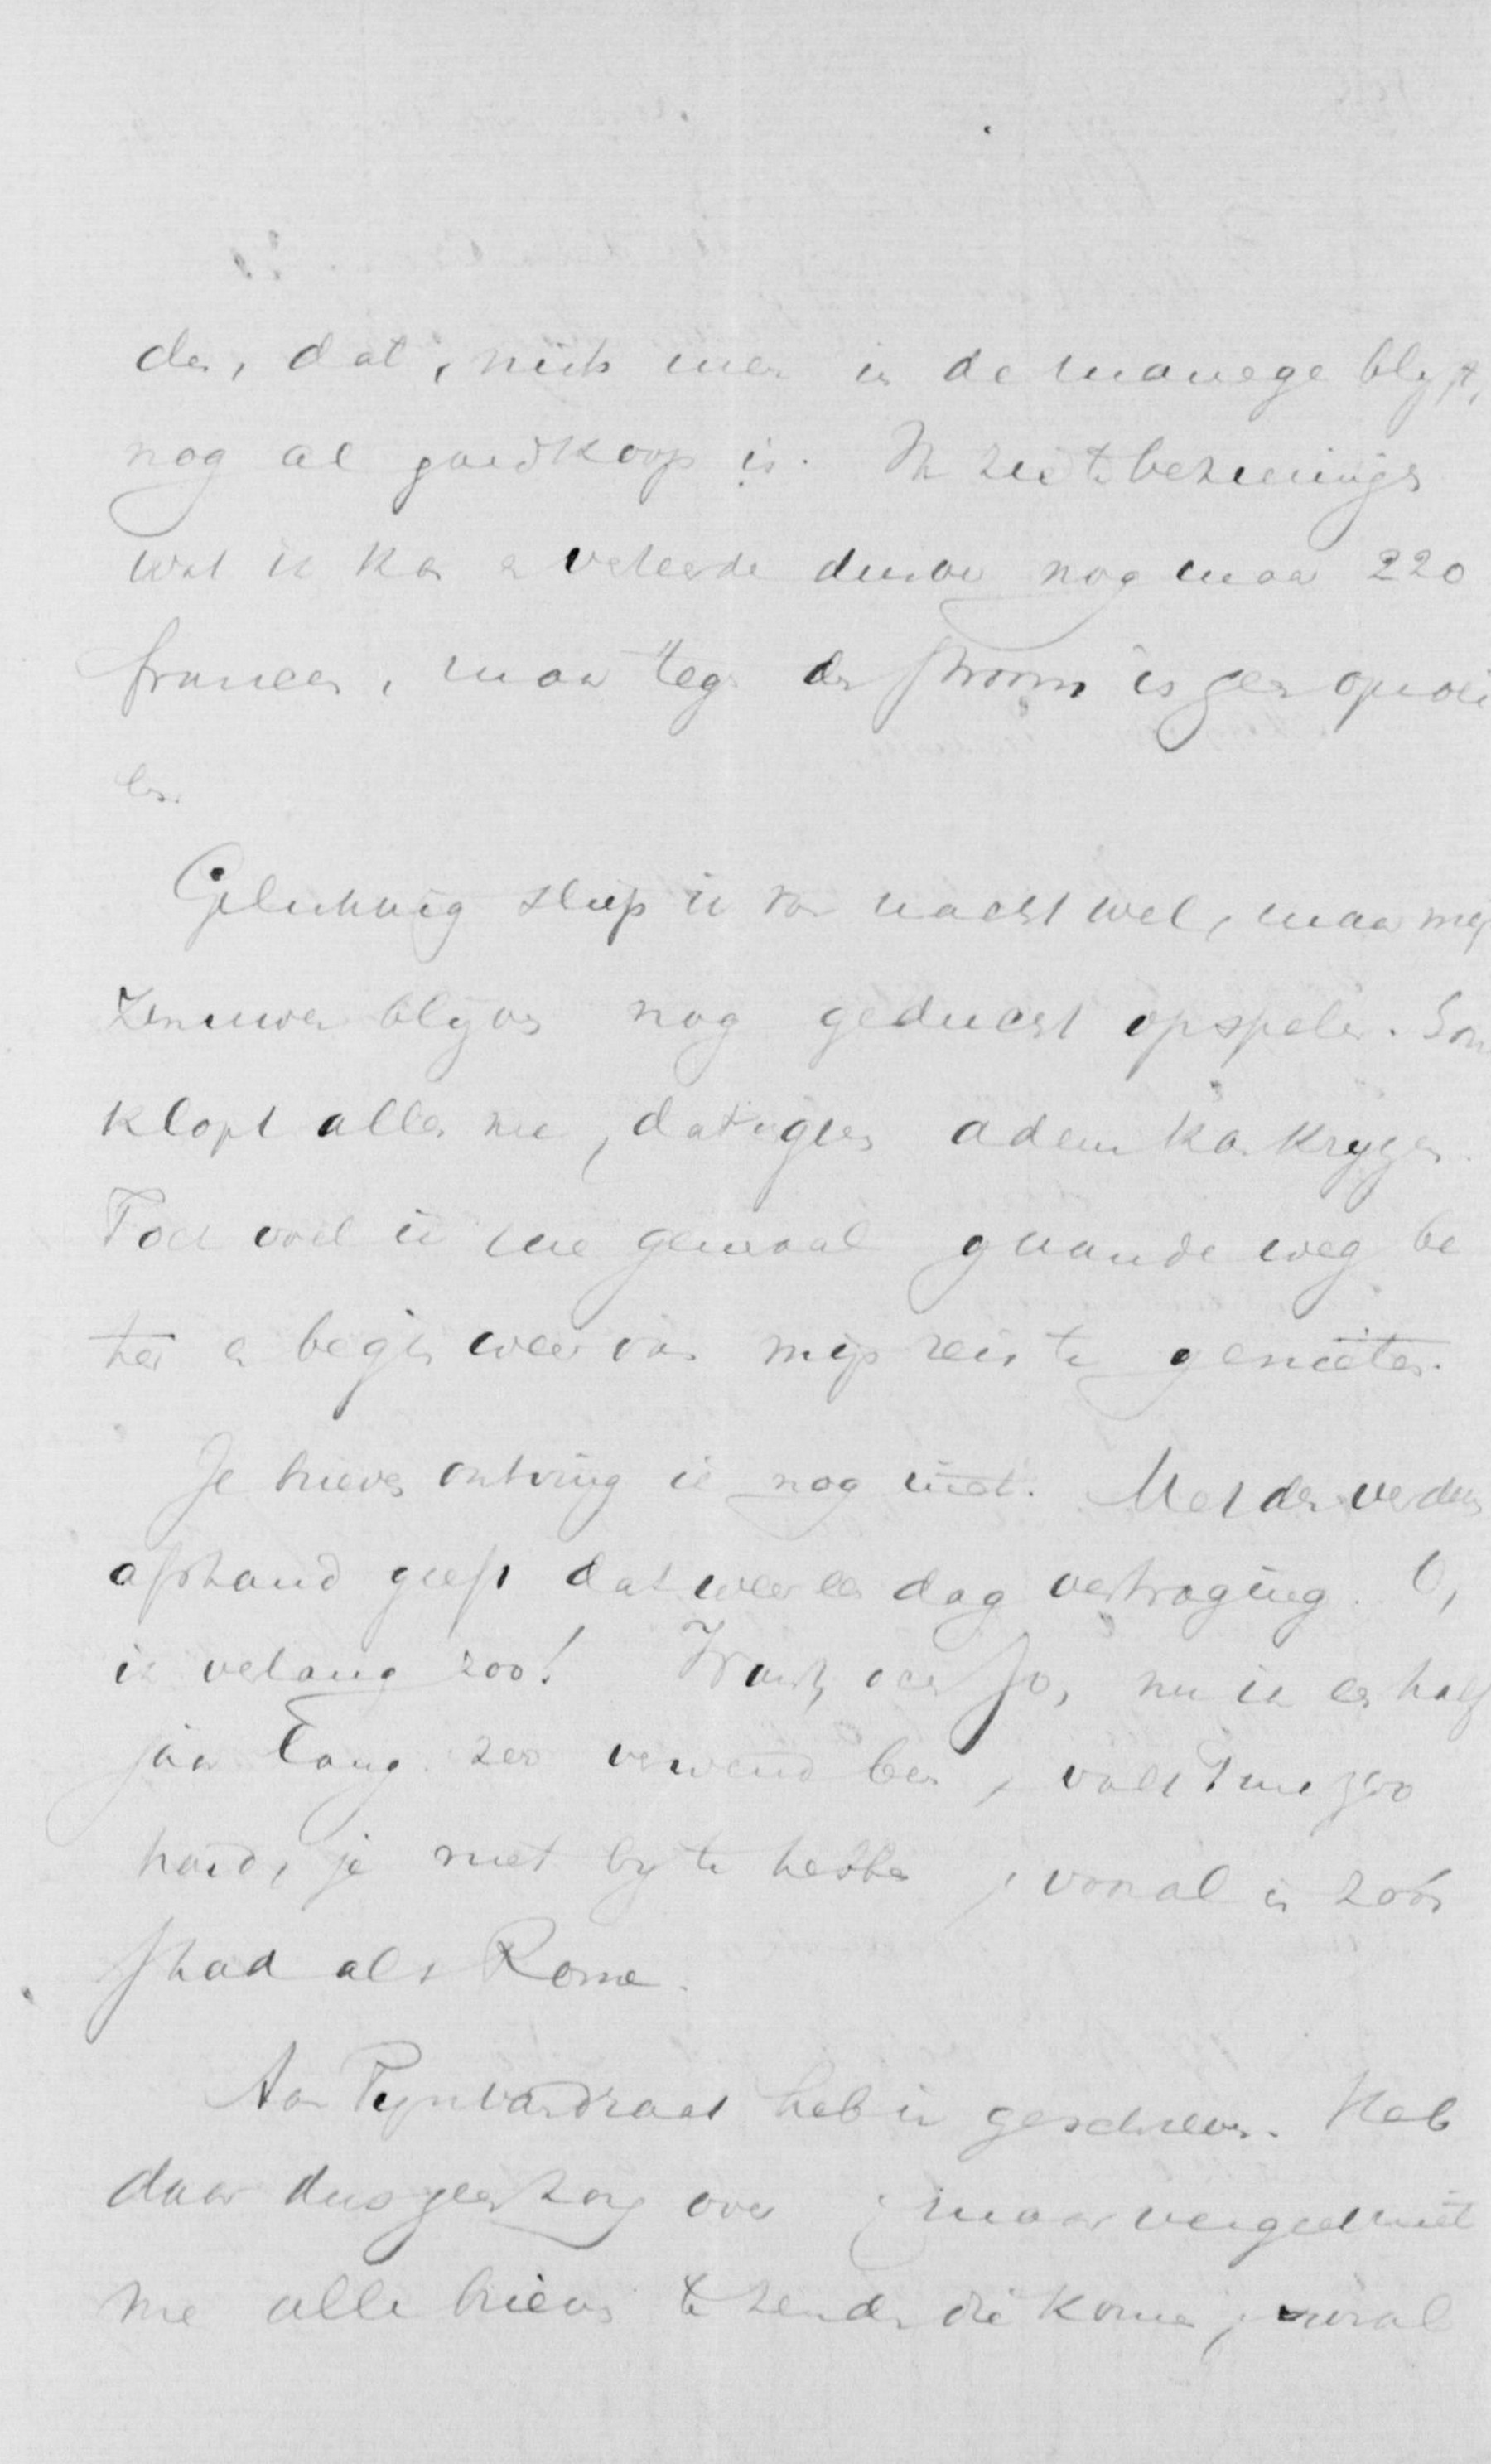 den, dat, niets meer in de manege blijft,
nog al goedkoop is. Ik zet bezuinigen
wat ik kan en verteerde dusver nog maar 220
francen, maar tegen den stroom is geen oproei
en.
Gelukkig sliep ik van nacht wel, maar mijn
zenuwen blijven nog geducht opspelen. Soms
klopt alles me, dat ik geen adem kan krijgen.
Toch voel ik me gemaal gaande weg be
ter en begin weer van mijn reis te genieten.
Je brieven ontving ik nog niet. Met den verderen
afstand geeft dat weer een dag vertraging. O,
ik verlang zoo! Want, zeer Jo, nu ik een half
jaar lang zoo verwend ben, valt 't me zoo
hard, je niet bij te hebben, vooral in zoo'n
stad als Rome.
Aan Pijnbandraat heb ik geschreven. Heb
daar dus geen zorg over; maar vergeet niet
me alle brieven te zenden die komen, vooral